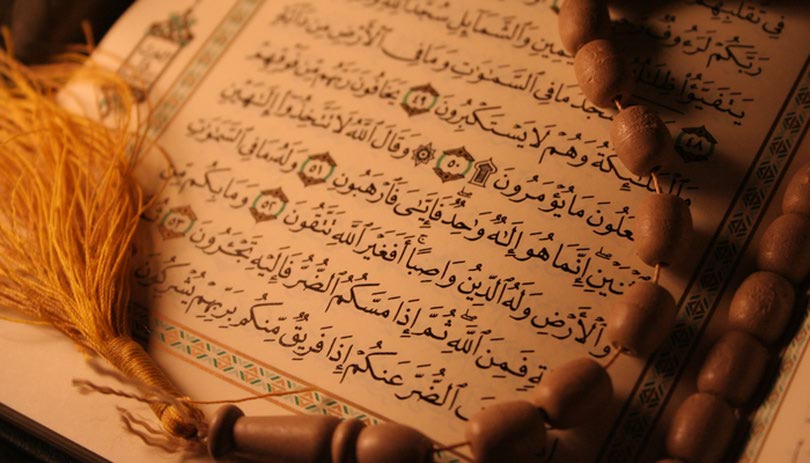 فِي تَقَلُّبِهِمْ
رَبَّكُمْ لَرَءُوفٌ
يَتَفَيَّؤُا۟ ظِلَٰلُهُۥ ٱلْيَمِينِ وَٱلشَّمَآئِلِ سُجَّدًا لِّلَّهِ
٤٨ مَا فِى ٱلسَّمَٰوَٰتِ وَمَا فِى ٱلْأَرْضِ مِن دَآبَّةٍ
وَهُمْ لَا يَسْتَكْبِرُونَ ٤٩ يَخَافُونَ رَبَّهُم مِّن فَوْقِهِمْ
مَا يُؤْمَرُونَ ۩ ٥٠ ۞ وَقَالَ ٱللَّهُ لَا تَتَّخِذُوٓا۟ إِلَٰهَيْنِ
إِنَّمَا هُوَ إِلَٰهٌ وَٰحِدٌ فَإِيَّٰىَ فَٱرْهَبُونِ ٥١ وَلَهُۥ مَا فِى ٱلسَّمَٰوَٰتِ
وَٱلْأَرْضِ وَلَهُ ٱلدِّينُ وَاصِبًا أَفَغَيْرَ ٱللَّهِ تَتَّقُونَ ٥٢ وَمَا بِكُم مِّن
فَمِنَ ٱللَّهِ ثُمَّ إِذَا مَسَّكُمُ ٱلضُّرُّ فَإِلَيْهِ تَجْـَٔرُونَ ٥٣
ٱلضُّرَّ عَنكُمْ إِذَا فَرِيقٌ مِّنكُم بِرَبِّهِمْ يُشْرِكُونَ